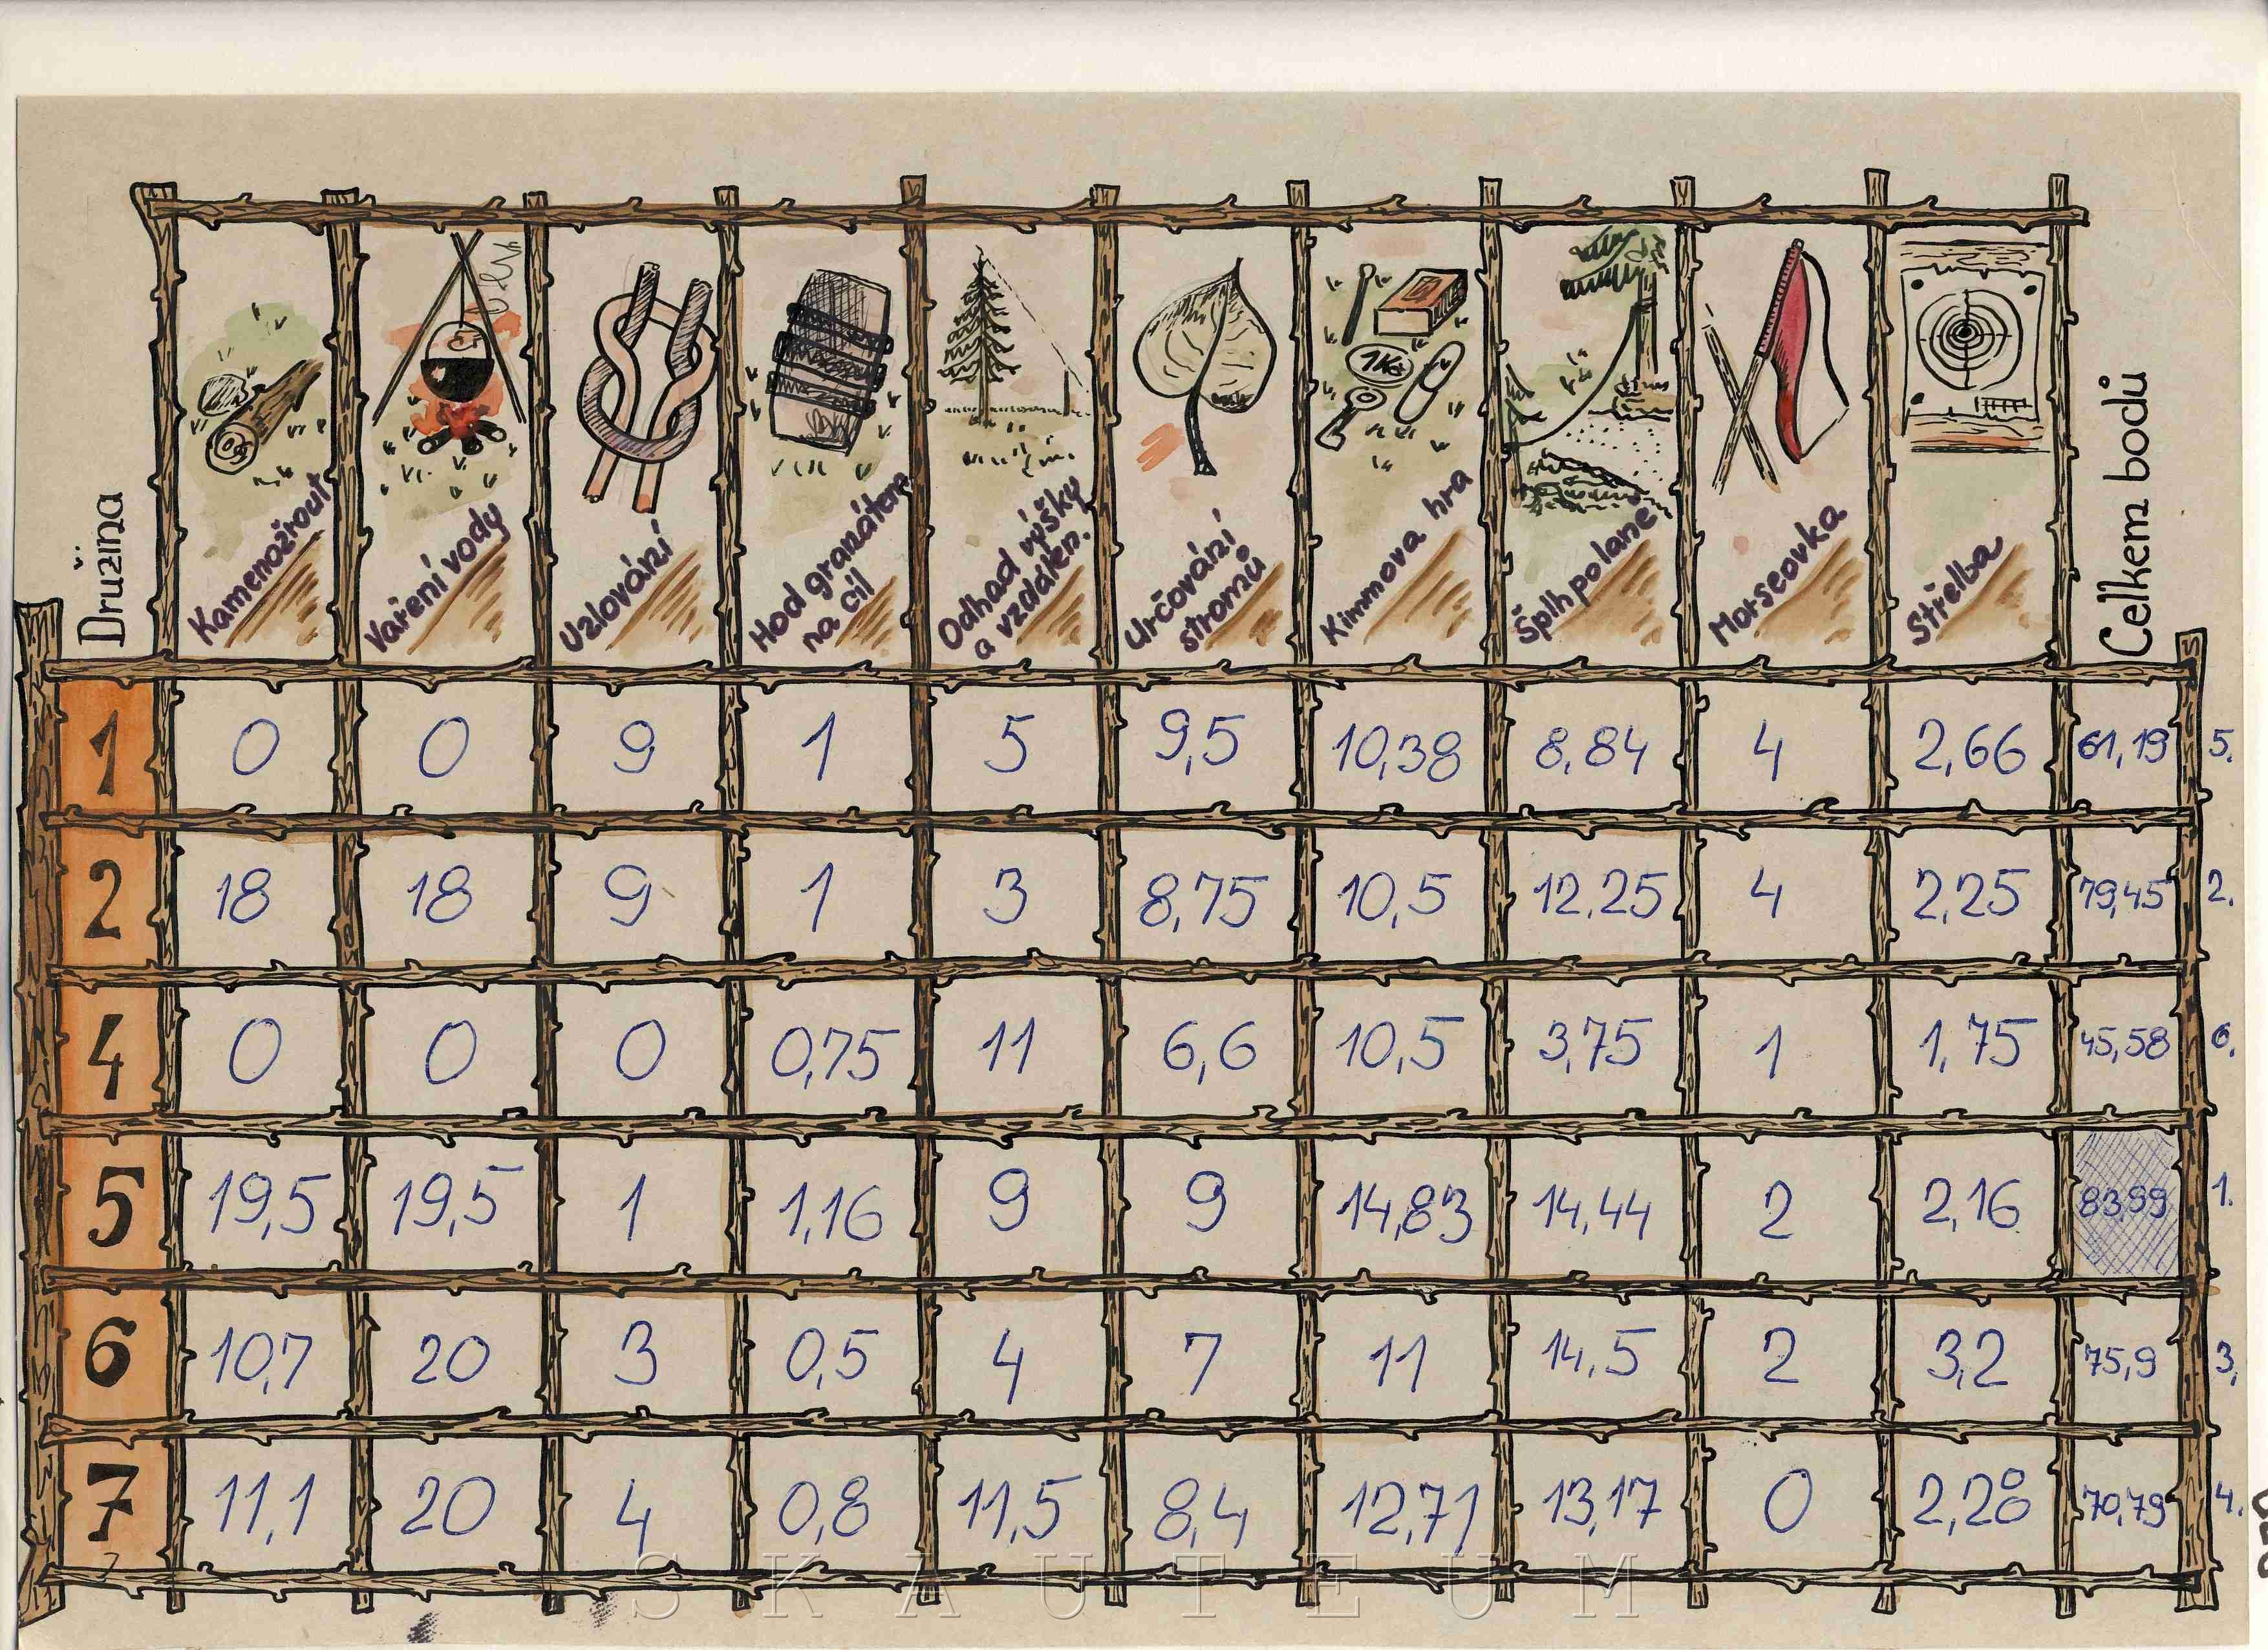 Družina
Kamenožrout
Vaření vody
Uzlování
Hod granátem
na cíl
Odhad výšky
a vzdálen.
Určování
stromů
1Kčs
Kimmova hra
Šplh po laně
Morseovka
Střelba
Celkem bodů
1 0 0 9 1 5 9,5 10,38 8,84 4 2,66 61,19 5.
2 18 18 9 1 3 8,75 10,5 12,25 4 2,25 79,45 2.
4 0 0 0 0,75 11 6,6 10,5 3,75 1 1,75 45,58 6.
5 19,5 19,5 1 1,16 9 9 14,83 14,44 2 2,16 83,99 1.
6 10,7 20 3 0,5 4 7 11 14,5 2 3,2 75,9 3.
7 11,1 20 4 0,8 11,5 8,4 12,71 13,17 0 2,28 70,79 4.
SKAUTEUM